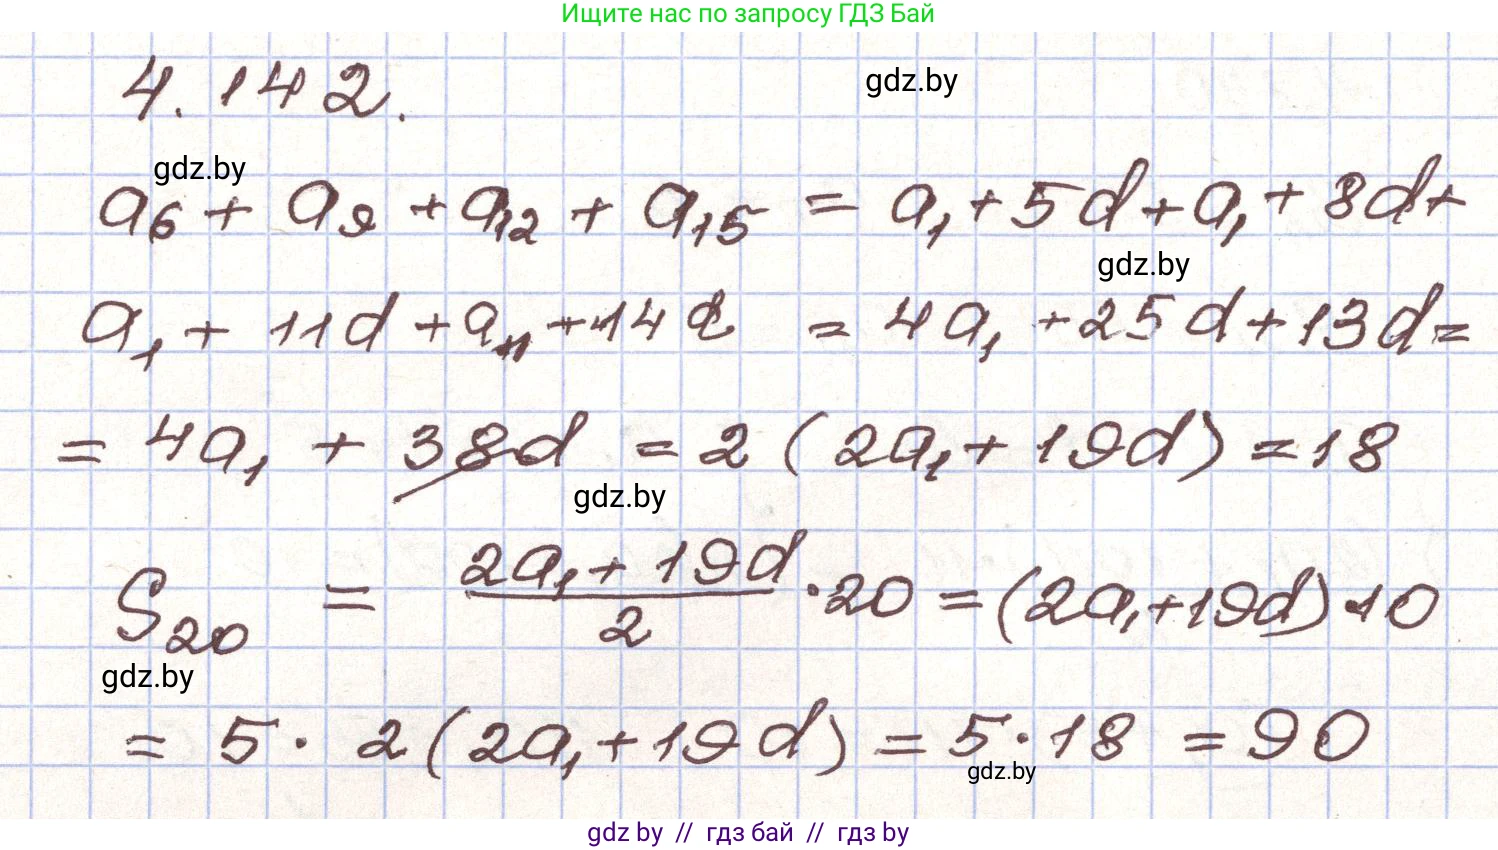 Ищите нас по запросу ГДЗ Бай
4.142.
gdz.by
gdz.by
a₆ + a₉ + a₁₂ + a₁₅ = a₁ + 5d + a₁ + 8d +
gdz.by
a₁ + 11d + a₁ + 14d = 4a₁ + 25d + 13d =
= 4a₁ + 38d = 2 (2a₁ + 19d) = 18
gdz.by
S₂₀ = (2a₁ + 19d)/2 · 20 = (2a₁ + 19d) · 10
gdz.by
= 5 · 2 (2a₁ + 19d) = 5 · 18 = 90
gdz.by
gdz by // гдз бай // гдз by